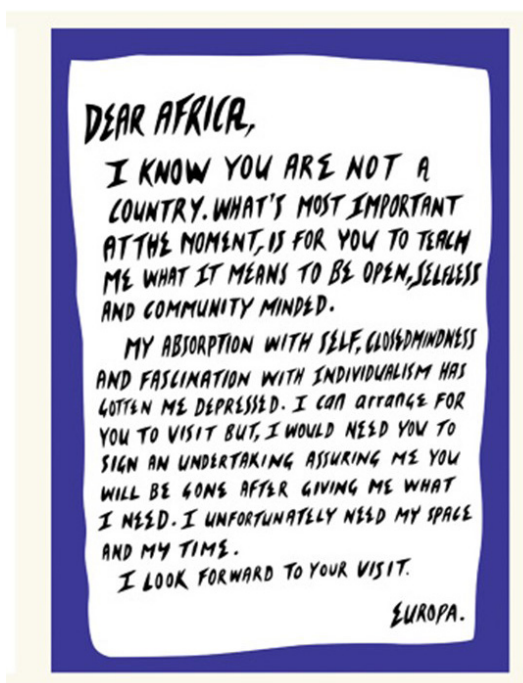 DEAR AFRICA,
I KNOW YOU ARE NOT A
COUNTRY. WHAT'S MOST IMPORTANT
AT THE MOMENT, IS FOR YOU TO TEACH
ME WHAT IT MEANS TO BE OPEN, SELFLESS
AND COMMUNITY MINDED.
MY ABSORPTION WITH SELF, CLOSEDMINDNESS
AND FASCINATION WITH INDIVIDUALISM HAS
GOTTEN ME DEPRESSED. I can arrange FOR
YOU TO VISIT BUT, I WOULD NEED YOU TO
SIGN AN UNDERTAKING ASSURING ME YOU
WILL BE GONE AFTER GIVING ME WHAT
I NEED. I UNFORTUNATELY NEED MY SPACE
AND MY TIME.
I LOOK FORWARD TO YOUR VISIT.
EUROPA.